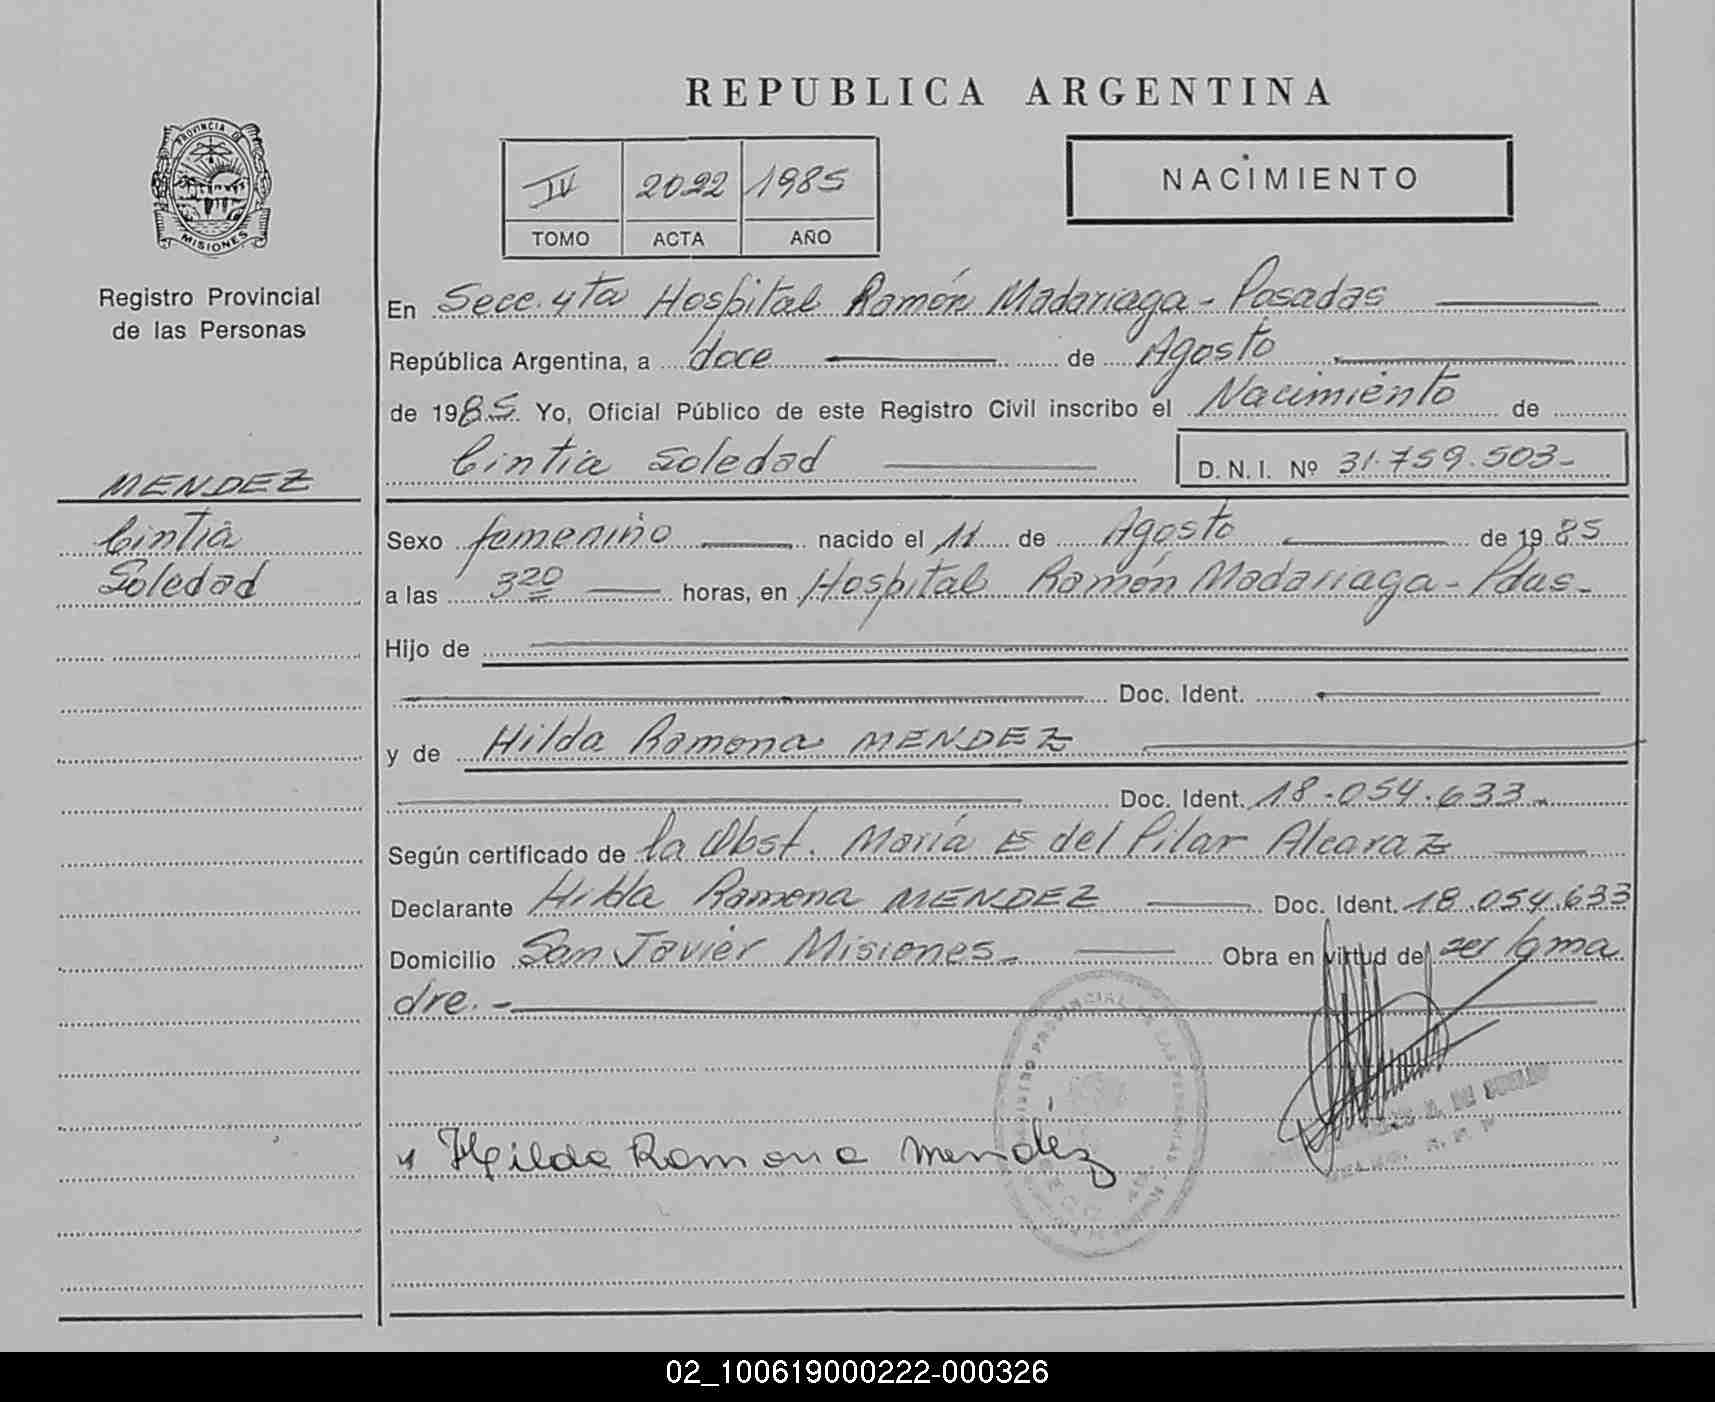 REPUBLICA ARGENTINA
PROVINCIA DE
MISIONES
Registro Provincial
de las Personas
IV 2022 1985
TOMO ACTA AÑO
NACIMIENTO
En Secc. 4ta Hospital Ramón Madariaga - Posadas
República Argentina, a doce de Agosto
de 1985. Yo, Oficial Público de este Registro Civil inscribo el Nacimiento de
Cintia Soledad D.N.I. Nº 31.759.503-
MENDEZ
Cintia
Soledad
Sexo femenino nacido el 11 de Agosto de 1985
a las 3 20 horas, en Hospital Ramón Madariaga - Pdas-
Hijo de
Doc. Ident.
y de Hilda Ramona MENDEZ
Doc. Ident. 18.054.633-
Según certificado de la Obst. María E del Pilar Alcaraz
Declarante Hilda Ramona MENDEZ Doc. Ident. 18.054.633
Domicilio San Javier Misiones- Obra en virtud de ser la ma
dre.-
Hilda Ramona Mendez
REGISTRO PROVINCIAL DE LAS PERSONAS
02_100619000222-000326